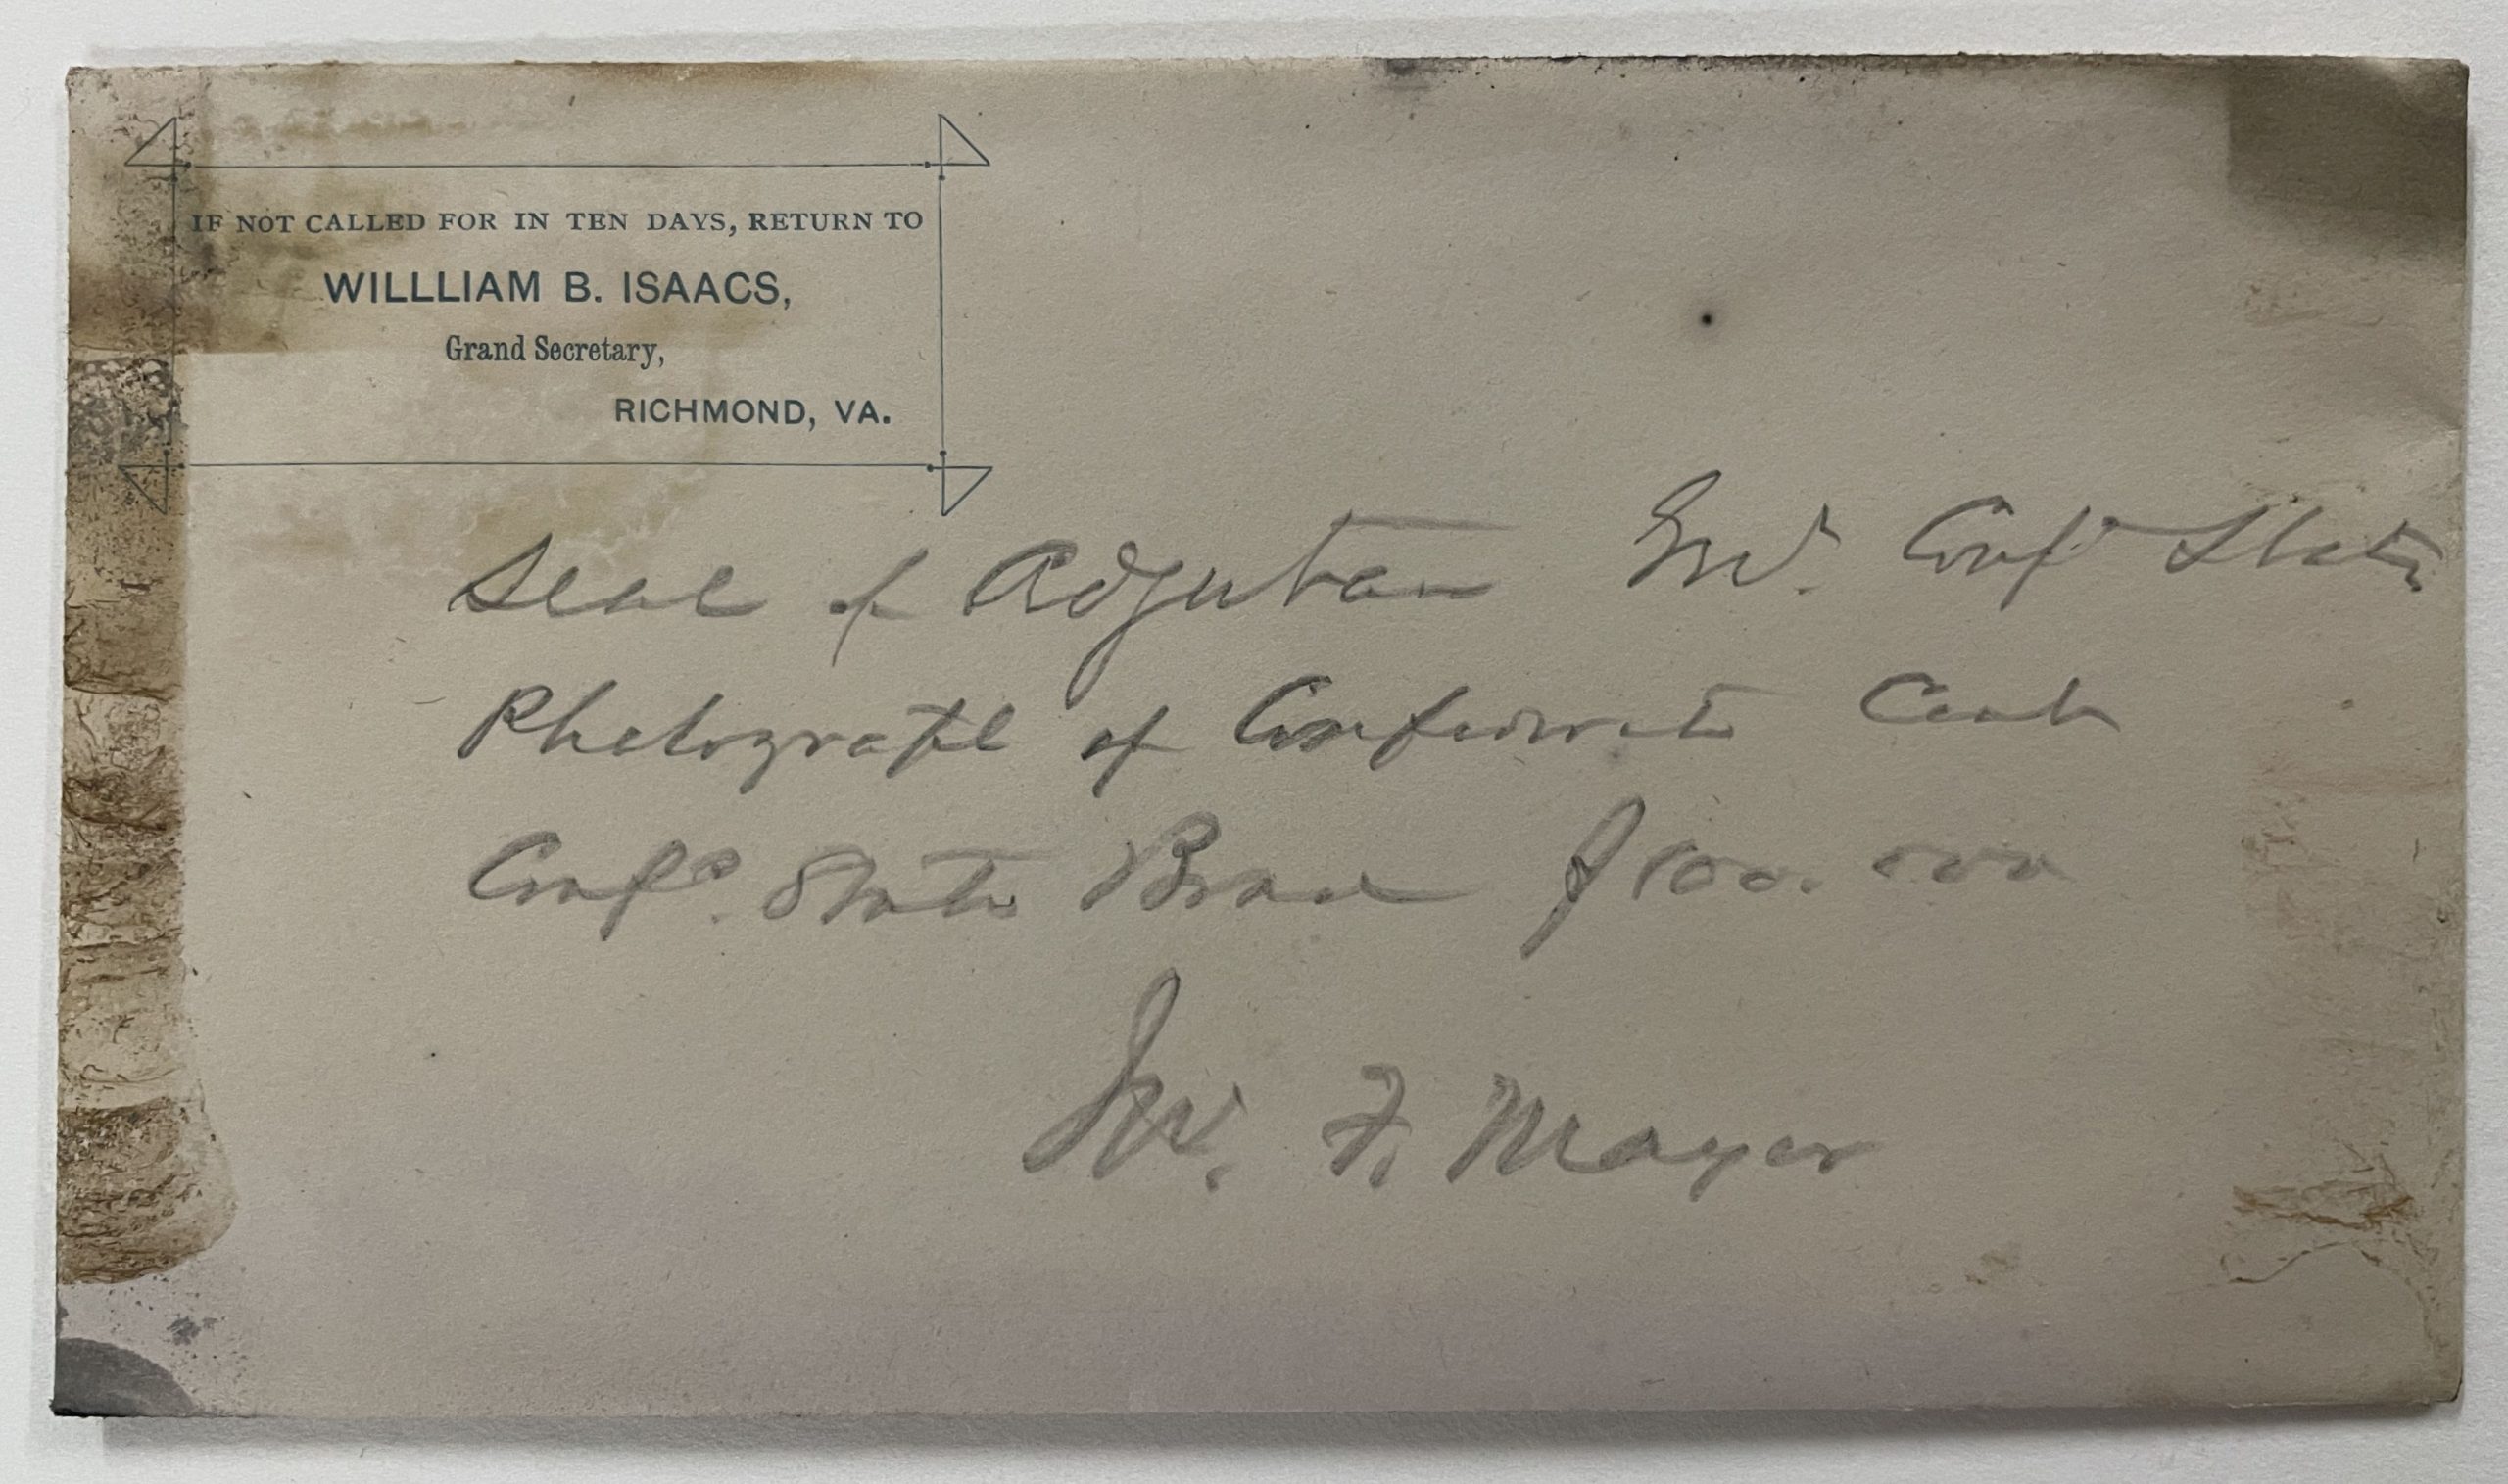 IF NOT CALLED FOR IN TEN DAYS, RETURN TO
WILLLIAM B. ISAACS,
Grand Secretary,
RICHMOND, VA.
Seal of Adjutan Conf States
Photograph of Confederate
Conf. States Bond $100.000
Jno. F. Mayer